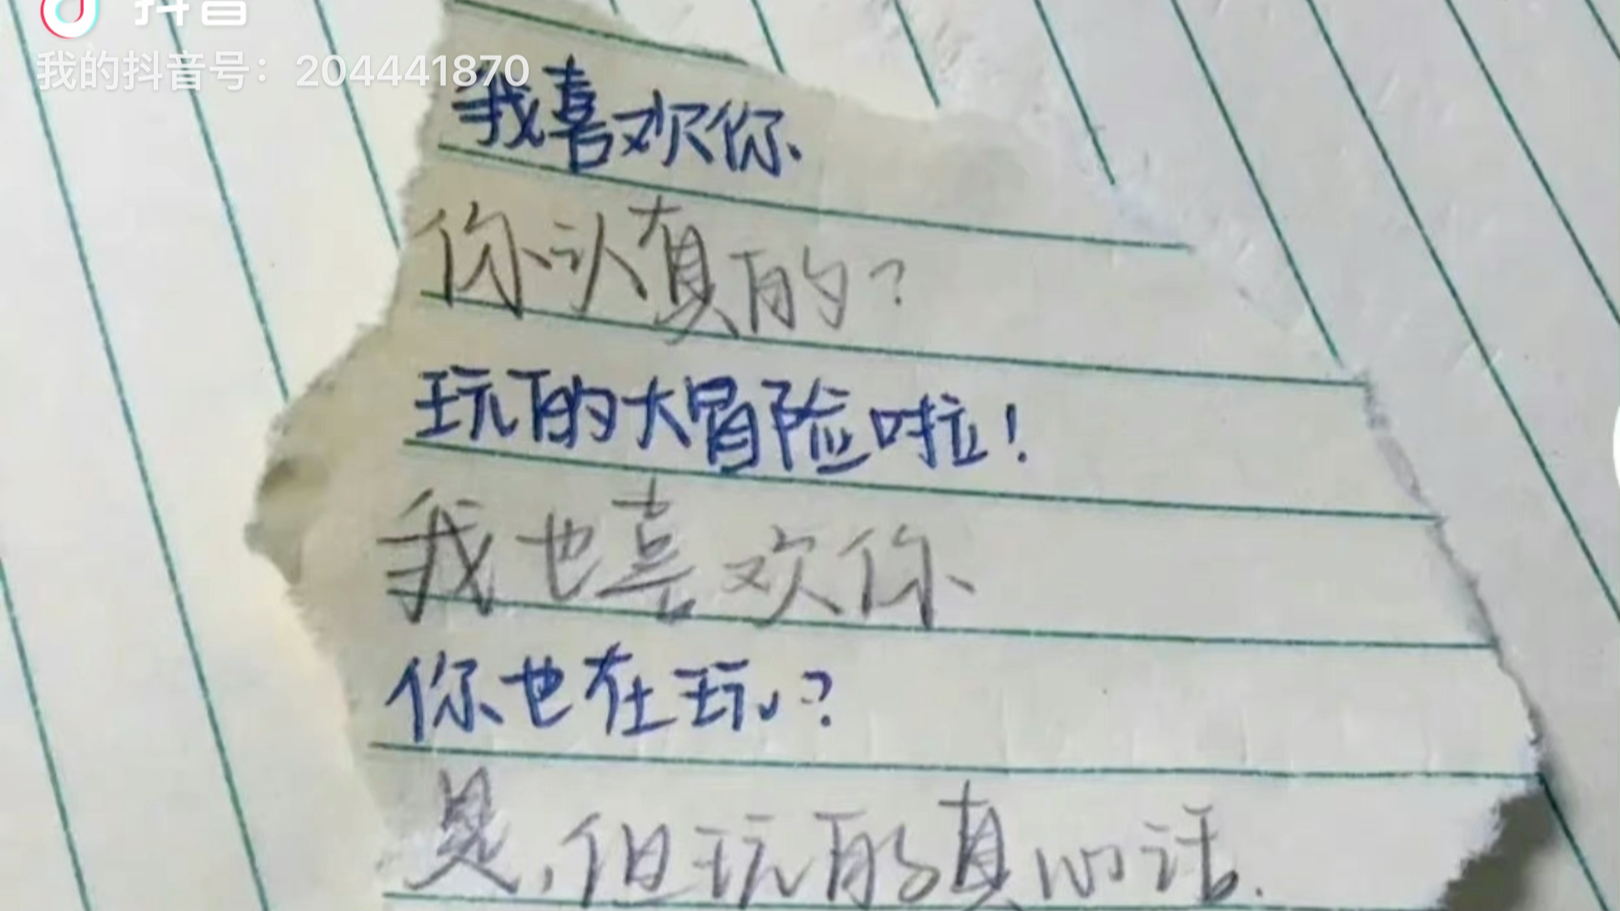 抖音
我的抖音号：204441870
我喜欢你、
你认真的？
玩的大冒险啦！
我也喜欢你
你也在玩？
是，但玩的真心话.